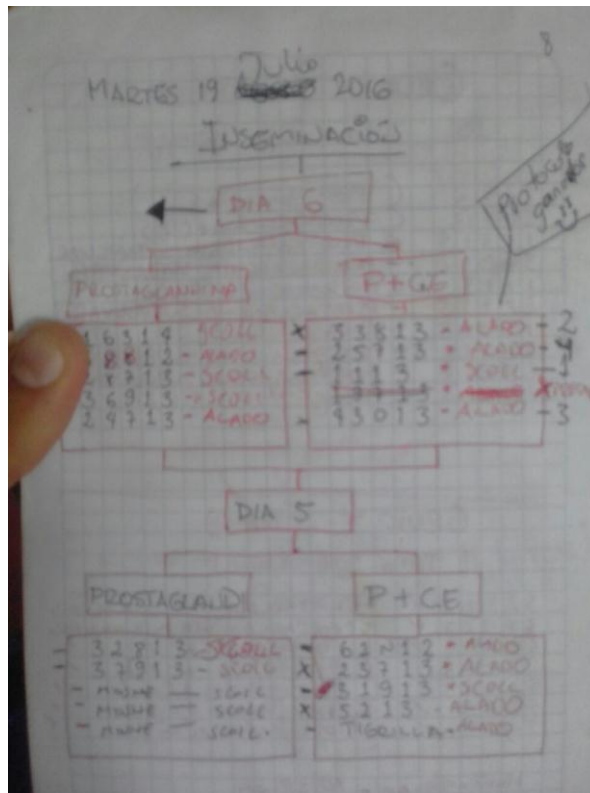 8
Julio
MARTES 19 2016
INSEMINACIÓN
DIA 6
Protocolo ganador
PROSTAGLANDINA
P + CE
16314 SCOLL
8813 - ALADO
28713 - SCOLL
36913 - SCOLL
29713 - ALADO
x 33813 - ALADO - 2
- 25713 • ALADO -
1113 • SCOLL -
- 43013 - ALADO - 3
DIA 5
PROSTAGLANDI
P + CE
- 32813 - SCOLL
- 37913 - SCOLL
- SCOLL
- SCOLL
- SCOLL.
- 62212 • ALADO
x 23713 • ALADO
- 51913 • SCOLL
x 5213 - ALADO
- TIGRILLA - ALADO